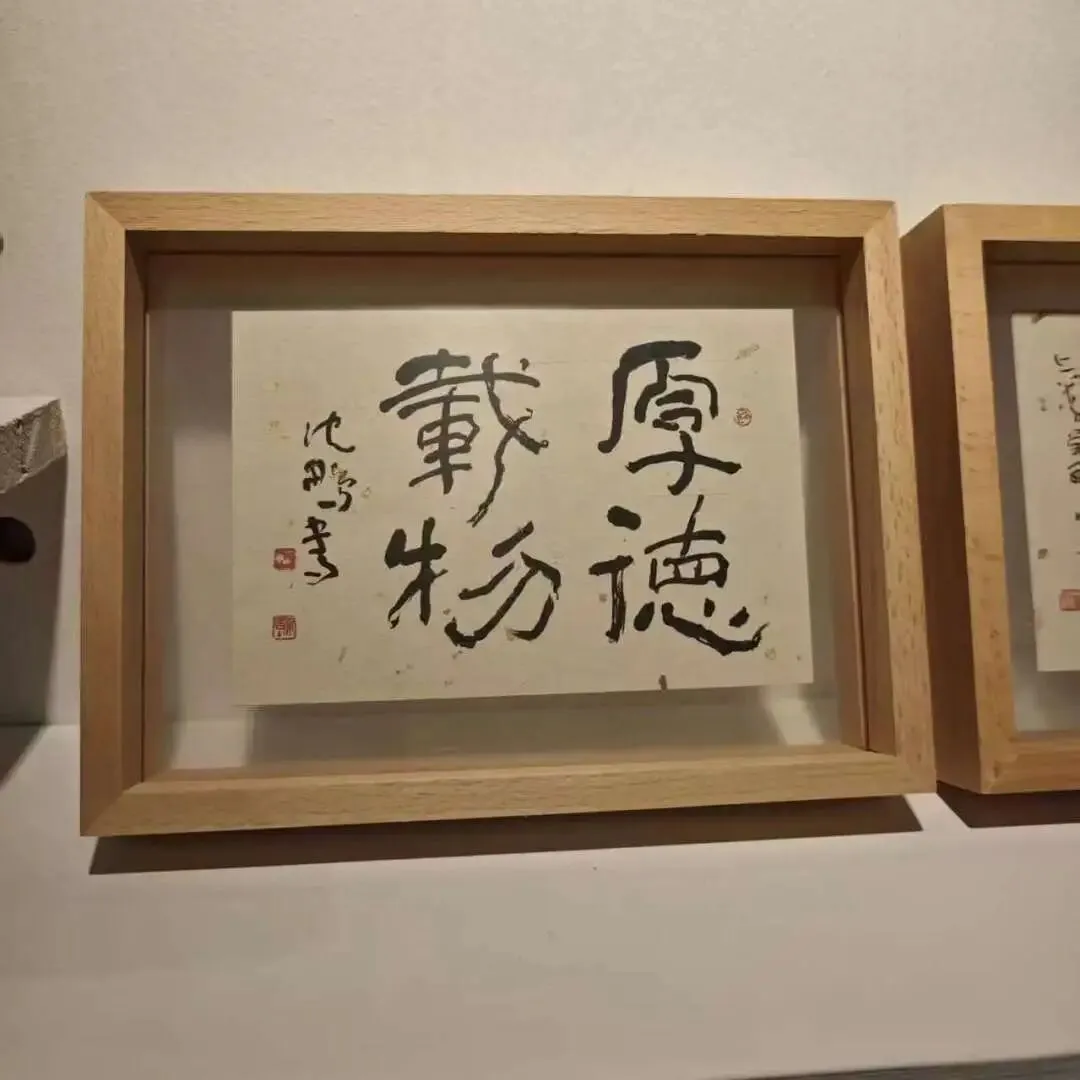 厚德
載物
沈鵬書